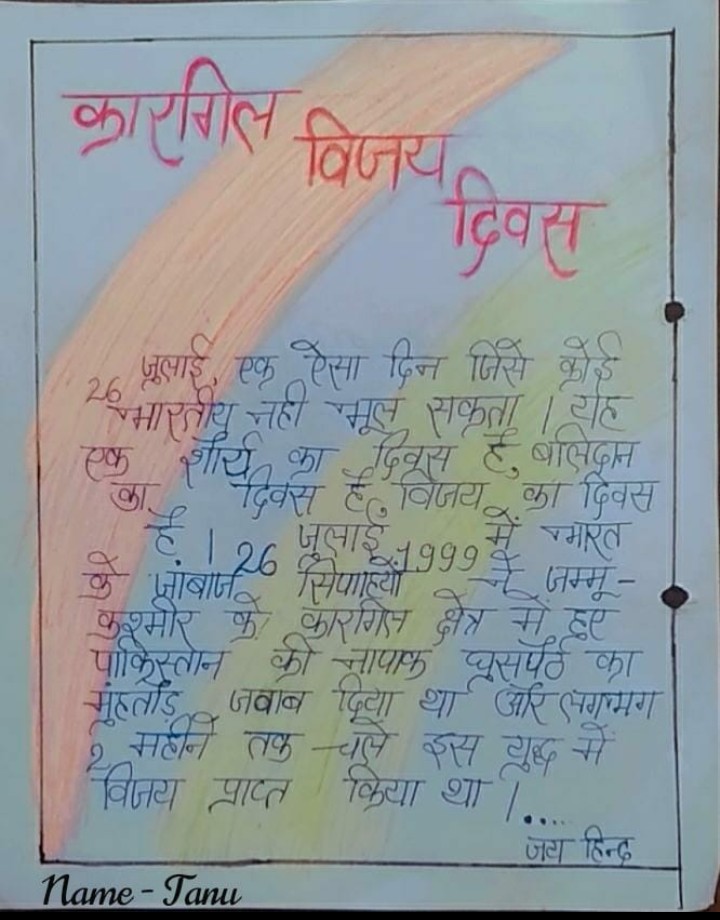 कारगिल
विजय
दिवस
26 जुलाई, एक ऐसा दिन जिसे कोई
भारतीय नही भूल सकता । येह
एक शौर्य का दिवस है, बलिदान
का दिवस है, विजय का दिवस
है । 26 जुलाई, 1999 में भारत
के जांबाज सिपाहियों ने जम्मू-
कश्मीर के कारगिल क्षेत्र में हुए
पाकिस्तान की नापाक घुसपैठ का
मुंहतोड़ जवाब दिया था और लगभग
2 महीने तक चले इस युद्ध में
विजय प्राप्त किया था ।....
जय हिन्द
Name - Tanu